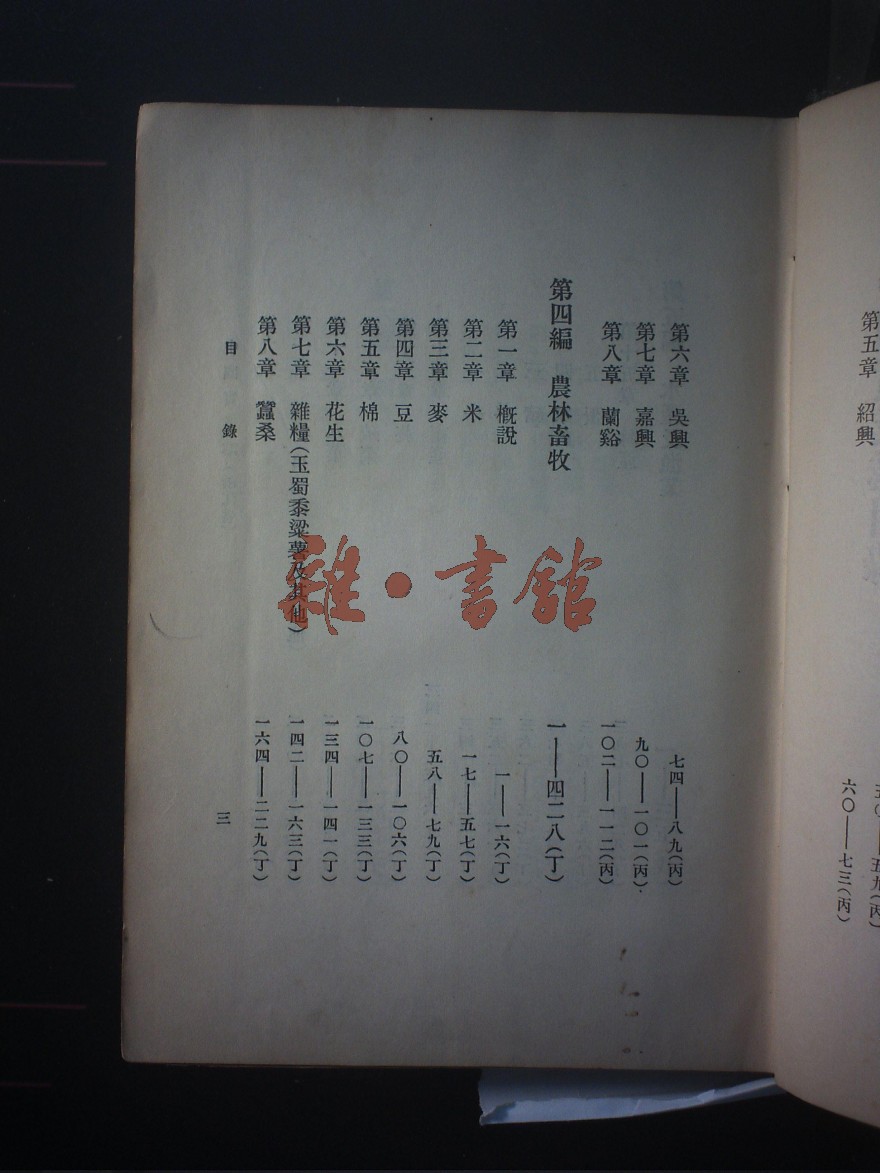 第五章　紹興　六〇——七三(丙)
第六章　吳興　七四——八九(丙)
第七章　嘉興　九〇——一〇一(丙)
第八章　蘭谿　一〇二——一一二(丙)
第四編　農林畜牧　一——四二八(丁)
第一章　槪說　一——一六(丁)
第二章　米　一七——五七(丁)
第三章　麥　五八——七九(丁)
第四章　豆　八〇——一〇六(丁)
第五章　棉　一〇七——一三三(丁)
第六章　花生　一三四——一四一(丁)
第七章　雜糧(玉蜀黍粱薯及其他)　一四二——一六三(丁)
第八章　蠶桑　一六四——二二九(丁)
目錄　三
雜·書館